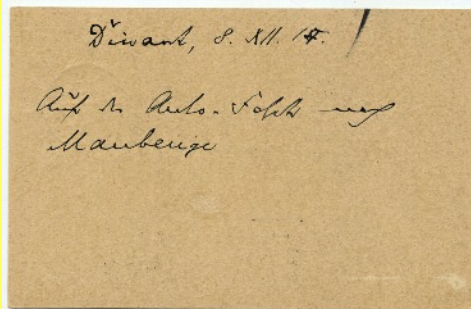 Dinant, 8. XII. 14.
Auf der Auto-Fahrt nach
Maubeuge